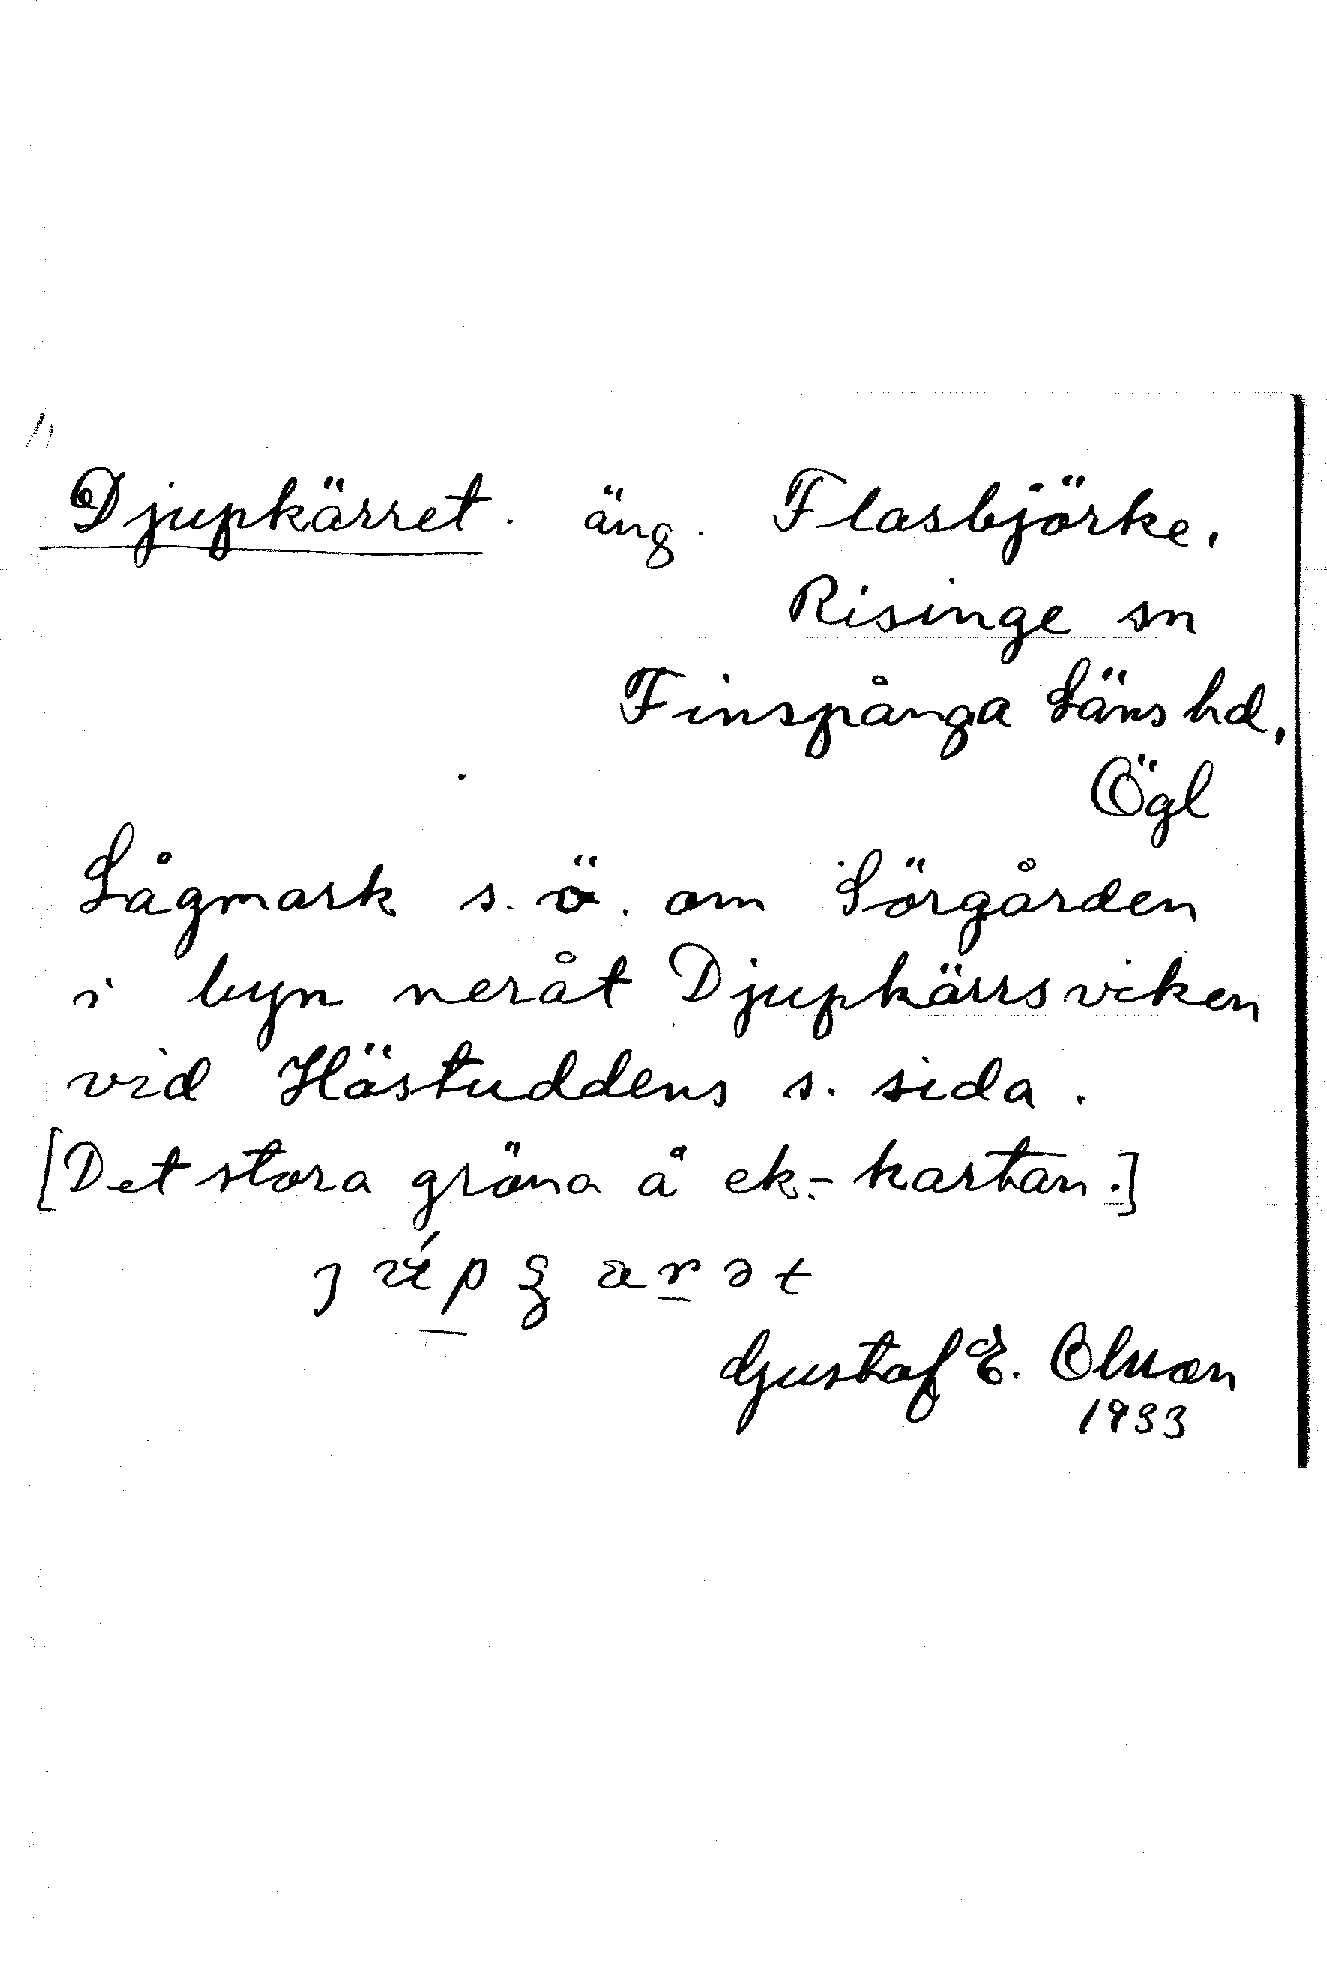 Djupkärret. äng. Flasbjörke.
Risinge sn
Finspånga Läns hd.
Ögl
Lågmark s. ö. om Sörgården
i byn neråt Djupkärrsviken
vid Hästuddens s. sida.
[Det stora gröna å ek.-kartan.]
Gustaf E. Olsson
1933